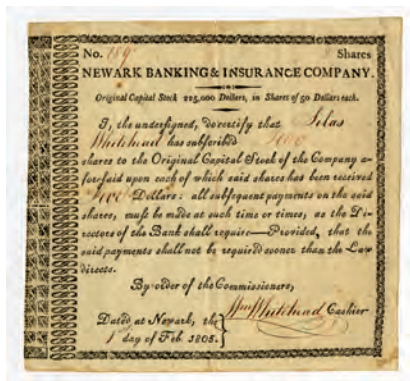 No. 189 Shares
NEWARK BANKING & INSURANCE COMPANY.
Original Capital Stock 225,000 Dollars, in Shares of 50 Dollars each.
I, the undersigned, do certify that Silas
Whitehead has subscribed
shares to the Original Capital Stock of the Company a-
foresaid upon each of which said shares has been received
Dollars: all subsequent payments on the said
shares, must be made at such time or times, as the Di-
rectors of the Bank shall require—Provided, that the
said payments shall not be required sooner than the Law
directs.
By order of the Commissioners,
Wm Whitehead Cashier
Dated, at Newark, the
1 day of Feb 1805.